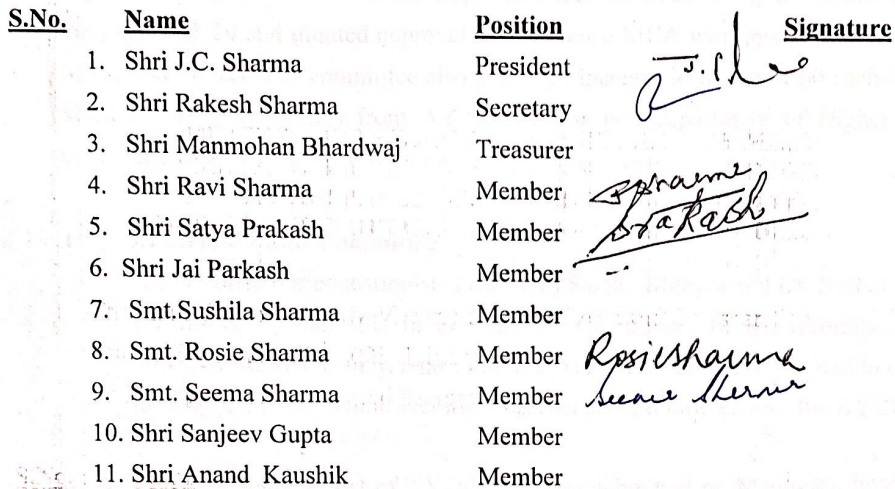 S.No. Name Position Signature
1. Shri J.C. Sharma President
2. Shri Rakesh Sharma Secretary
3. Shri Manmohan Bhardwaj Treasurer
4. Shri Ravi Sharma Member
5. Shri Satya Prakash Member
6. Shri Jai Parkash Member
7. Smt.Sushila Sharma Member
8. Smt. Rosie Sharma Member Rosie Sharma
9. Smt. Seema Sharma Member Seema Sharma
10. Shri Sanjeev Gupta Member
11. Shri Anand Kaushik Member